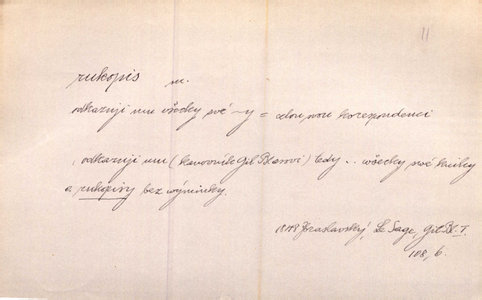 11
rukopis m.
odkazuji mu všecky své –y = celou svou korespondenci
odkazuji mu (kanovník Gil Blasovi) tedy .. wšecky swé knihy
a rukopisy bez wýminky.
1848 Braslavský, Le Sage, Gil Bl. I.
108, b.